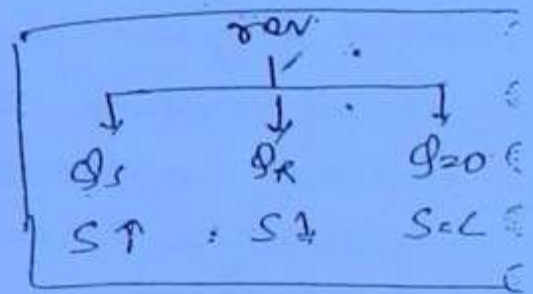 rev.
Qs QR Q=0
S↑ S↓ S=C